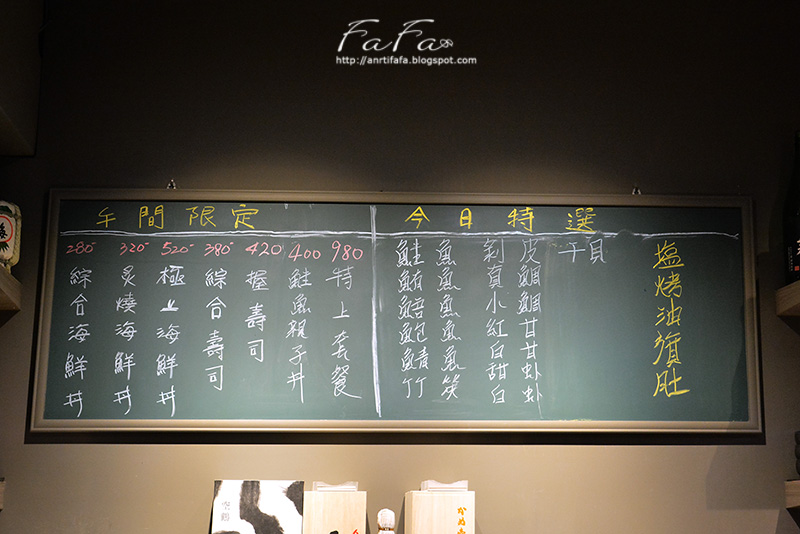 FaFa
http://anrtifafa.blogspot.com
午間限定
280 綜合海鮮丼
320 炙燒海鮮丼
520 極上海鮮丼
380 綜合壽司
420 握壽司
400 鮭魚親子丼
980 特上套餐
今日特選
鮭魚
鮪魚
魚
鮑魚
鯖魚
竹筴
剝皮
真鯛
小鯛
紅甘
白甘
甜虾
白虾
干貝
塩烤油肚